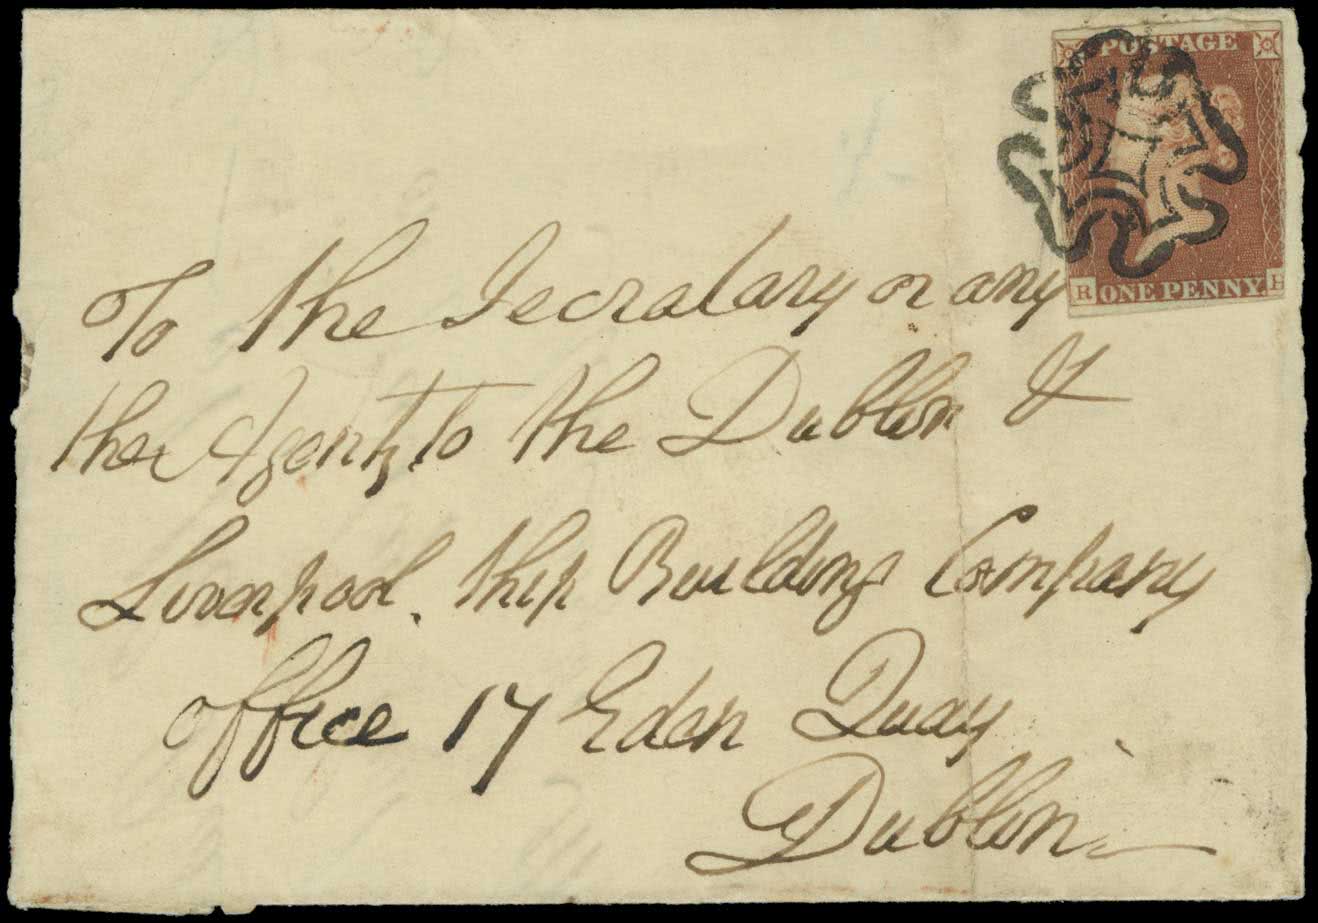 POSTAGE
R ONE PENNY. H
To the Secratary or any
ther Agent, to the Dublin &
Liverpool. Ship Building Company
office 17 Eden Quay
Dublin